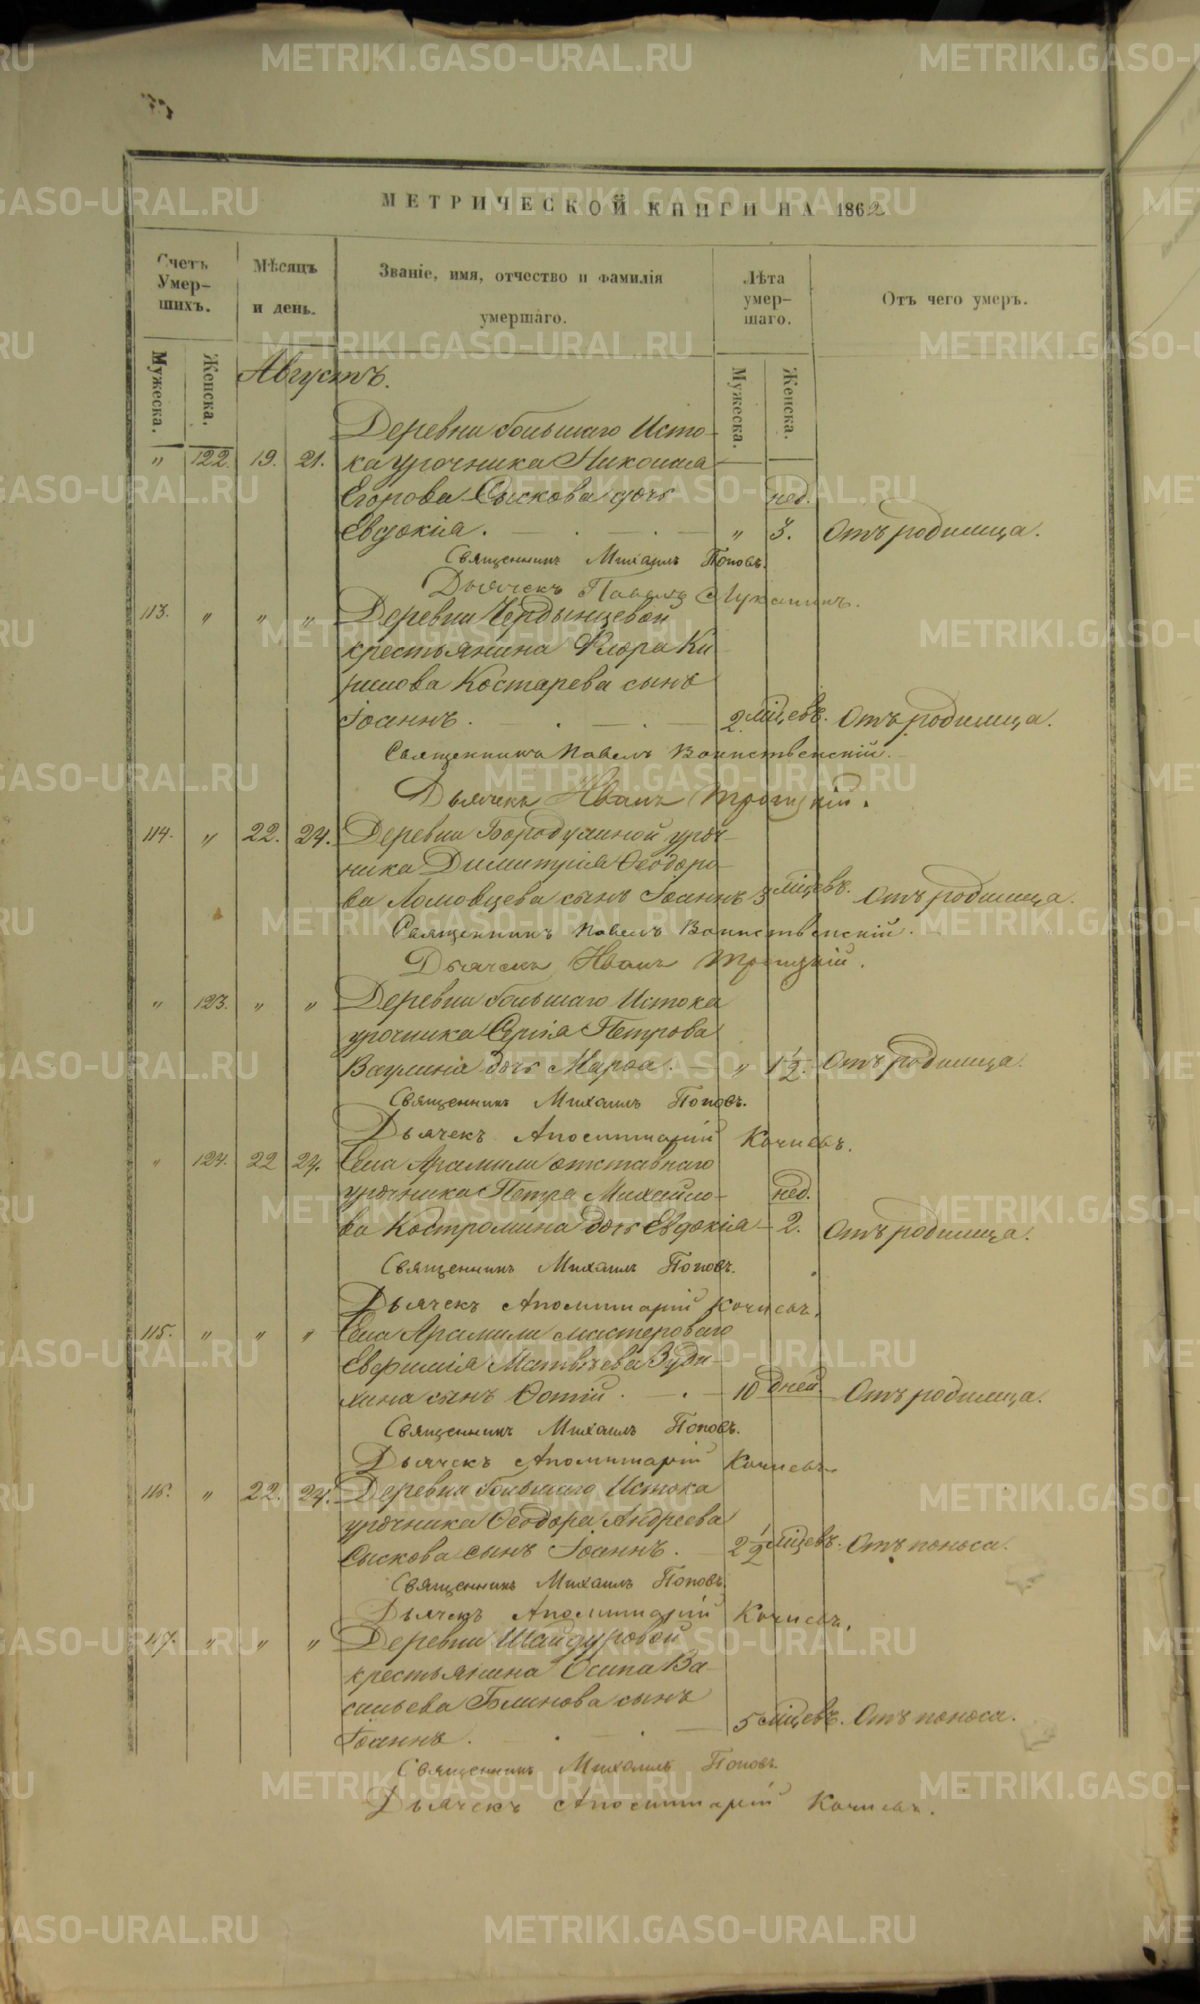 МЕТРИЧЕСКОЙ КНИГИ НА 1862
Счетъ Умер-шихъ.
Мѣсяцъ и день.
Званіе, имя, отчество и фамилія умершаго.
Лѣта умер-шаго.
Отъ чего умеръ.
Мужеска. Женска.
Мужеска. Женска.
Августъ.
Деревни большаго Исто-
" 122. 19. 21. ка урочника Николая
Егорова Сыскова дочь нед.
Евдокія. " 3. Отъ родимца.
Священникъ Михаилъ Поповъ.
Дьячекъ Павелъ Луканинъ.
113. " " " Деревни Чердынцевой
крестьянина Флора Ки
рилова Костарева сынъ
Іоаннъ. 2 мѣсцевъ. Отъ родимца.
Священникъ Павелъ Воинственскій.
Дьячекъ Иванъ Троицкій.
114. " 22. 24. Деревни Бородулиной уроч-
ника Димитрія Ѳеодоро-
ва Ломовцева сынъ Іоаннъ 3 мѣсцевъ. Отъ родимца.
Священникъ Павелъ Воинственскій.
Дьячекъ Иванъ Троицкій.
" 123. " " Деревни большаго Истока
урочника Сергія Петрова
Ваулина дочь Марѳа. " 1 1/2. Отъ родимца.
Священникъ Михаилъ Поповъ.
Дьячекъ Аполлинарій Кочневъ.
" 124. 22 24. Села Арамили отставнаго
урочника Петра Михайло- нед.
ва Костромина дочь Евдокія 2. Отъ родимца.
Священникъ Михаилъ Поповъ.
Дьячекъ Аполлинарій Кочневъ.
115. " " " Села Арамили мастероваго
Евфимія Матвѣева
сынъ Фотій. 10 дней Отъ родимца.
Священникъ Михаилъ Поповъ.
Дьячекъ Аполлинарій Кочневъ.
116. " 22. 24. Деревни большаго Истока
урочника Ѳеодора Андреева
Сыскова сынъ Іоаннъ. 2 1/2 мѣсцевъ. Отъ поноса.
Священникъ Михаилъ Поповъ.
Дьячекъ Аполлинарій Кочневъ.
117. " " " Деревни Шайдуровой
крестьянина Осипа Ва-
сильева Блинова сынъ
Іоаннъ. 5 мѣсцевъ. Отъ поноса.
Священникъ Михаилъ Поповъ.
Дьячекъ Аполлинарій Кочневъ.
METRIKI.GASO-URAL.RU